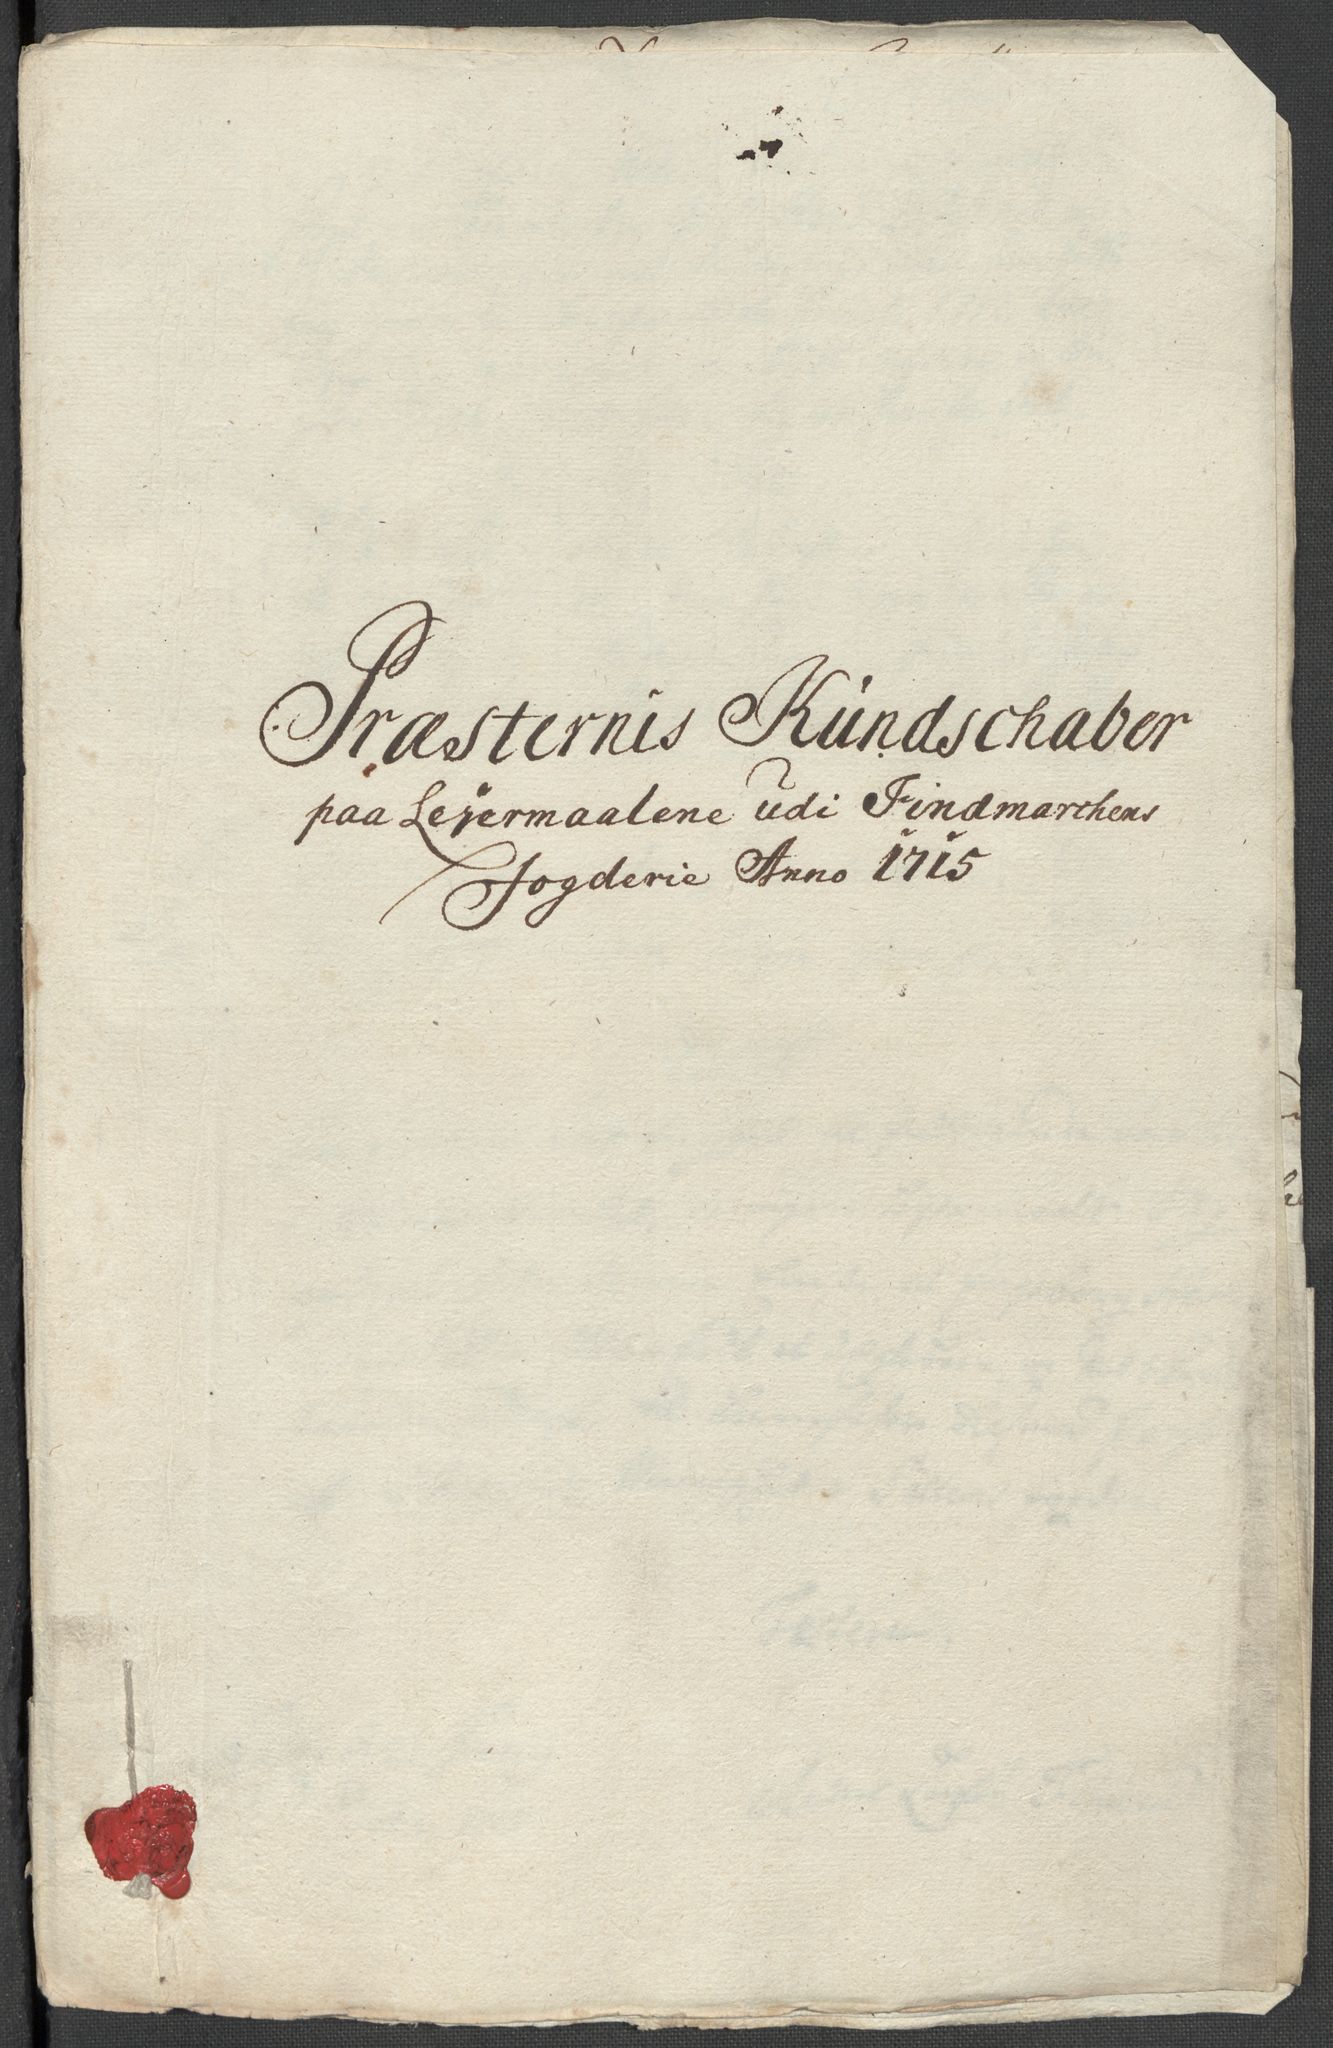 Præsternis Kündschaber
paa Leÿermaalene udi Findmarchens
Fogderie Anno 1715